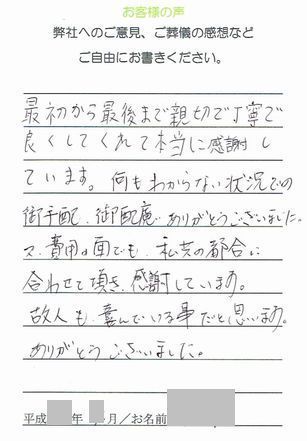 お客様の声
弊社へのご意見、ご葬儀の感想など
ご自由にお書きください。
最初から最後まで親切で丁寧で
良くしてくれて本当に感謝し
ています。何もわからない状況での
御手配、御配慮ありがとうございました。
又、費用の面でも、私共の都合に
合わせて頂き、感謝しています。
故人も喜んでいる事だと思います。
ありがとうございました。
平成 年 月/お名前